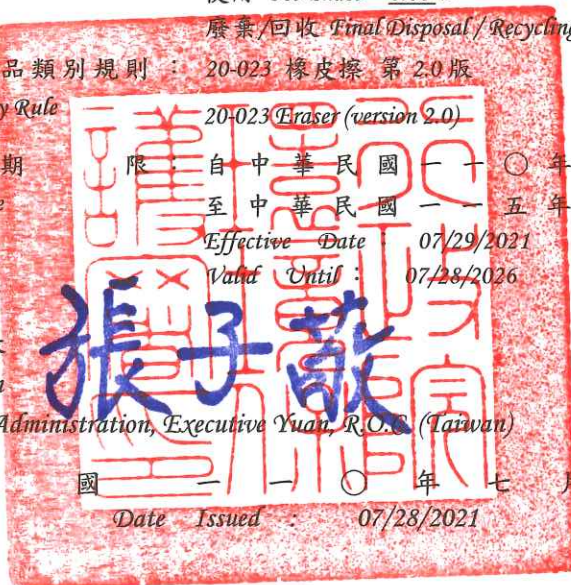 廢棄/回收 Final Disposal / Recycling
品類別規則 : 20-023 橡皮擦 第 2.0 版
y Rule 20-023 Eraser (version 2.0)
期 限 : 自中華民國一一〇年
至中華民國一一五年
Effective Date : 07/29/2021
Valid Until : 07/28/2026
張子敬
Administration, Executive Yuan, R.O.C. (Taiwan)
國 一 一 〇 年 七 月
Date Issued : 07/28/2021